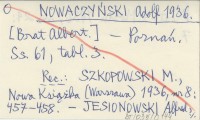 NOWACZYŃSKI Adolf 1936.
[Brat Albert.] — Poznań.
Ss. 61, tabl. 3.
Rec.: SZKOPOWSKI M.,
Nowa Książka (Warszawa) 1936, nr 8:
457-458. — JESIONOWSKI Alfred